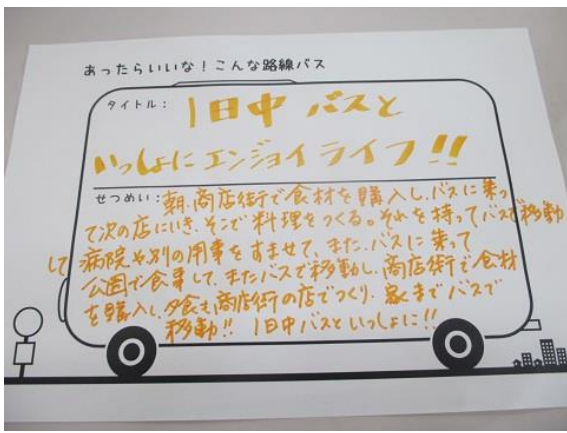 あったらいいな！こんな路線バス
タイトル： 1日中 バスと
いっしょにエンジョイライフ!!
せつめい：朝、商店街で食材を購入し、バスに乗っ
て次の店にいき、そこで料理をつくる。それを持ってバスで移動
して 病院や別の用事をすませて、また、バスに乗って
公園で食事して、またバスで移動し、商店街で食材
を購入し、夕食も商店街の店でつくり、家までバスで
移動!! 1日中バスといっしょに!!